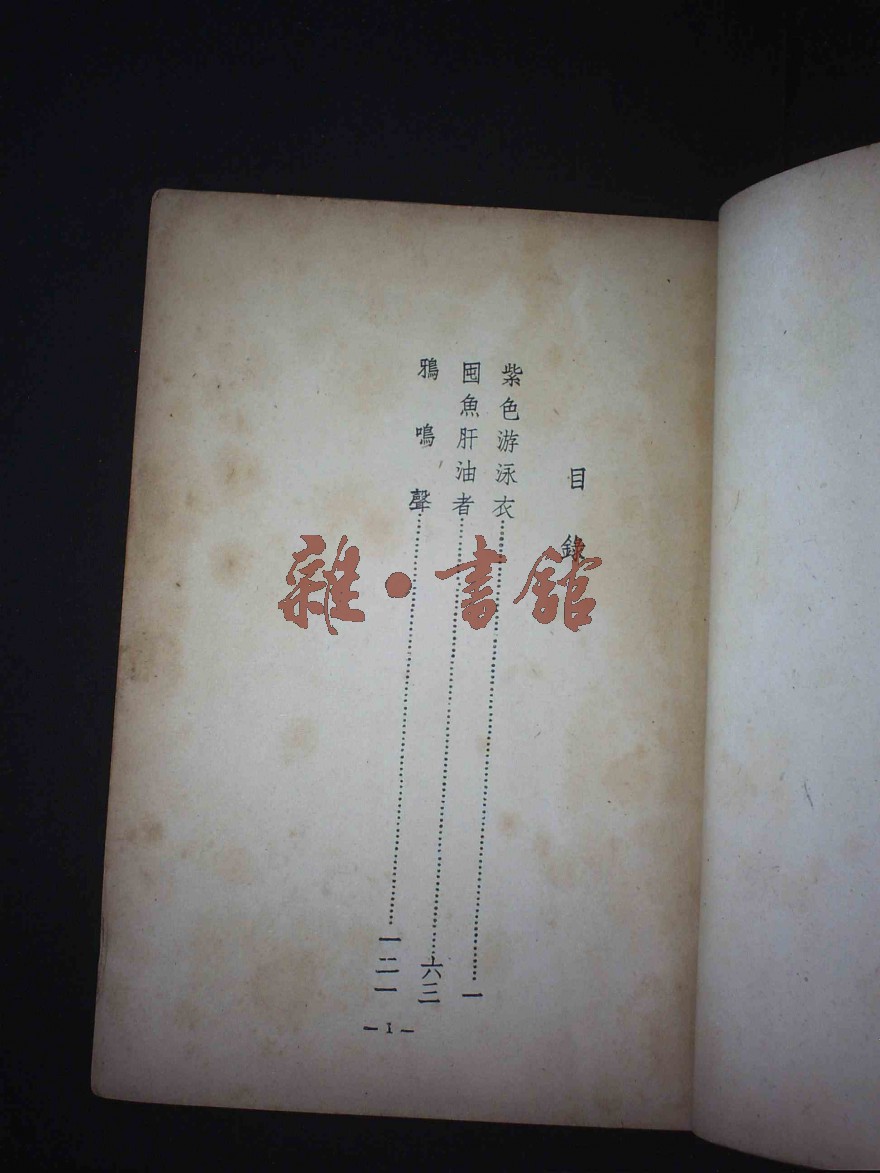 目錄
紫色游泳衣……一
囤魚肝油者……六三
鴉鳴聲……一二一
— 1 —
雜·書館